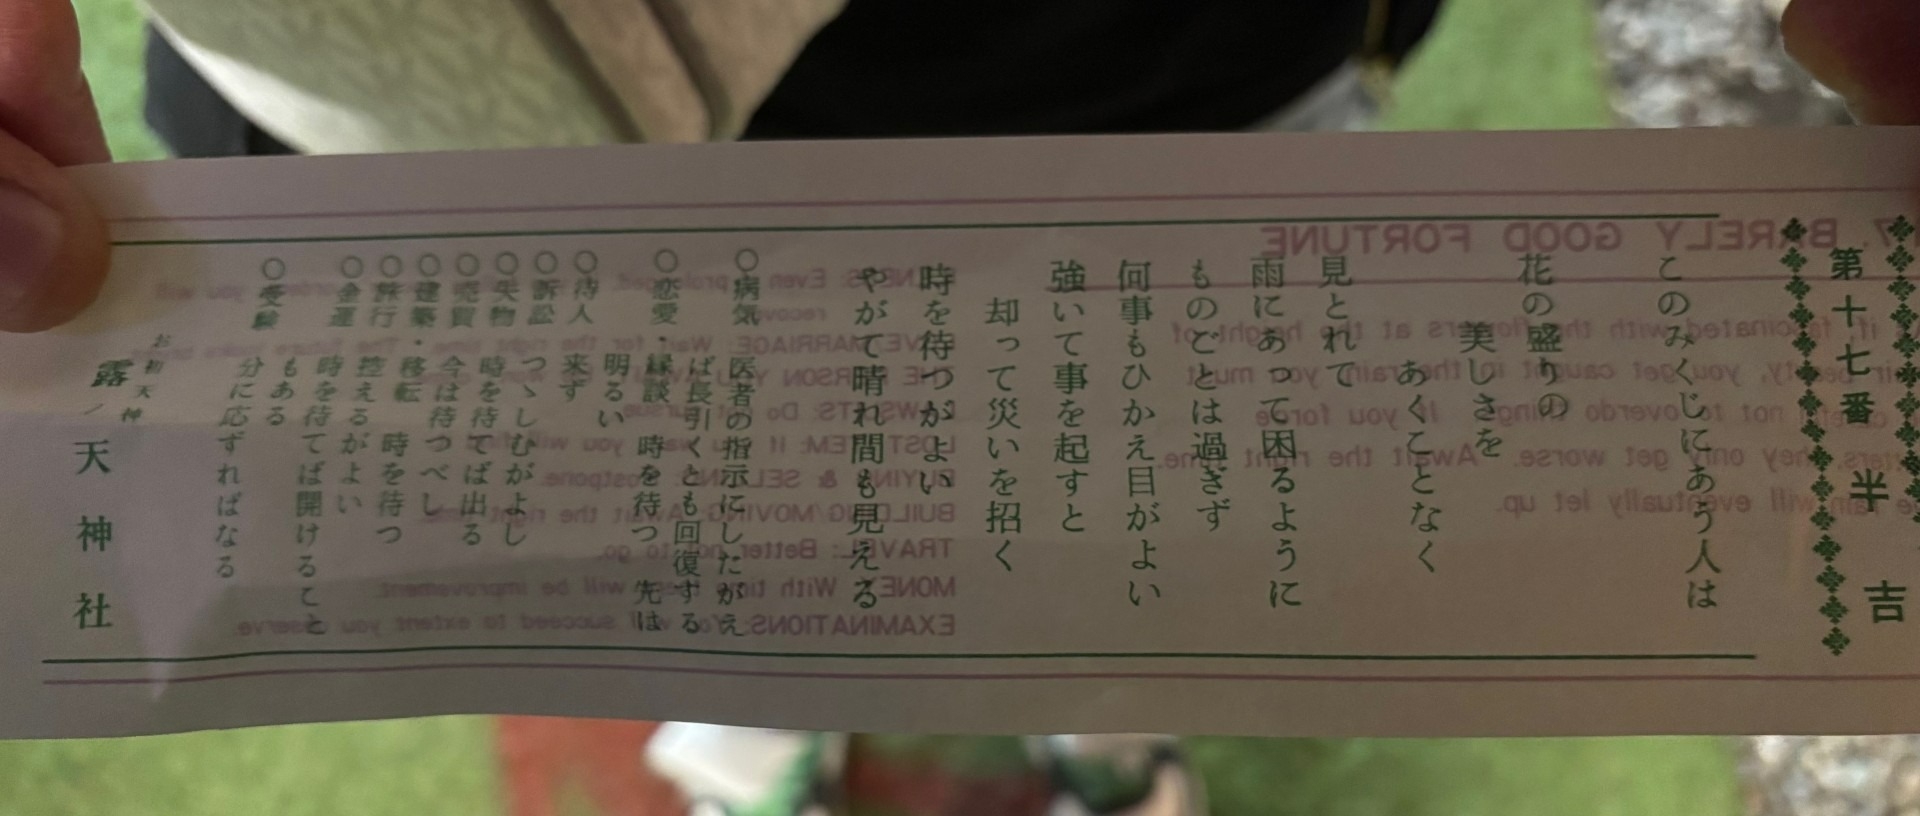 第十七番 半吉
このみくじにあう人は
花の盛りの
美しさを
あくことなく
見とれて
雨にあって困るように
ものごとは過ぎず
何事もひかえ目がよい
強いて事を起すと
却って災いを招く
時を待つがよい
やがて晴れ間も見える
○病気 医者の指示にしたがえ
ば長引くとも回復する
○恋愛・縁談 時を待つ 先は
明るい
○待人 来ず
○訴訟 つゝしむがよし
○失物 時を待てば出る
○売買 今は待つべし
○建築・移転 時を待つ
○旅行 控えるがよい
○金運 時を待てば開けること
もある
○受験 分に応ずればなる
お初天神
露ノ天神社
7. BARELY GOOD FORTUNE
if, fascinated with the flowers at the height of
their beauty, you get caught in the rain, you must
careful not to overdo things. If you force
matters, they only get worse. Await the right time.
The rain will eventually let up.
ILLNESS: Even if prolonged, you will
recover
LOVE/MARRIAGE: Wait for the right time. The future looks bright
THE PERSON YOU AWAIT: won't come
LAWSUITS: Do not pursue.
LOST ITEM: If you wait, you will find
BUYING & SELLING: Postpone.
BUILDING/MOVING: Await the right time.
TRAVEL: Better not to go.
MONEY: With time there will be improvement.
EXAMINATIONS: You will succeed to extent you deserve.